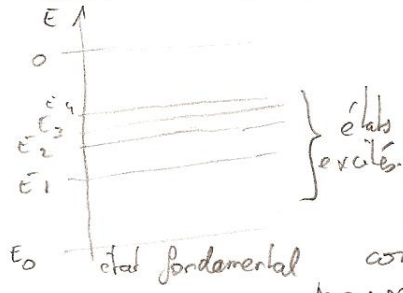 E
0
E4
E3
E2
E1
états
excités.
E0 état fondamental